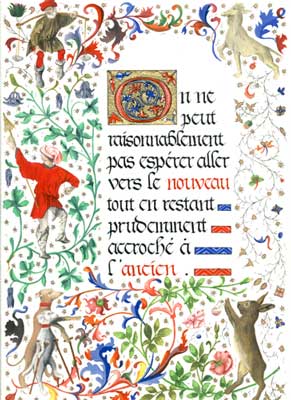 On ne
peut
raisonnablement
pas espérer aller
vers le nouveau
tout en restant
prudemment
accroché à
l'ancien.